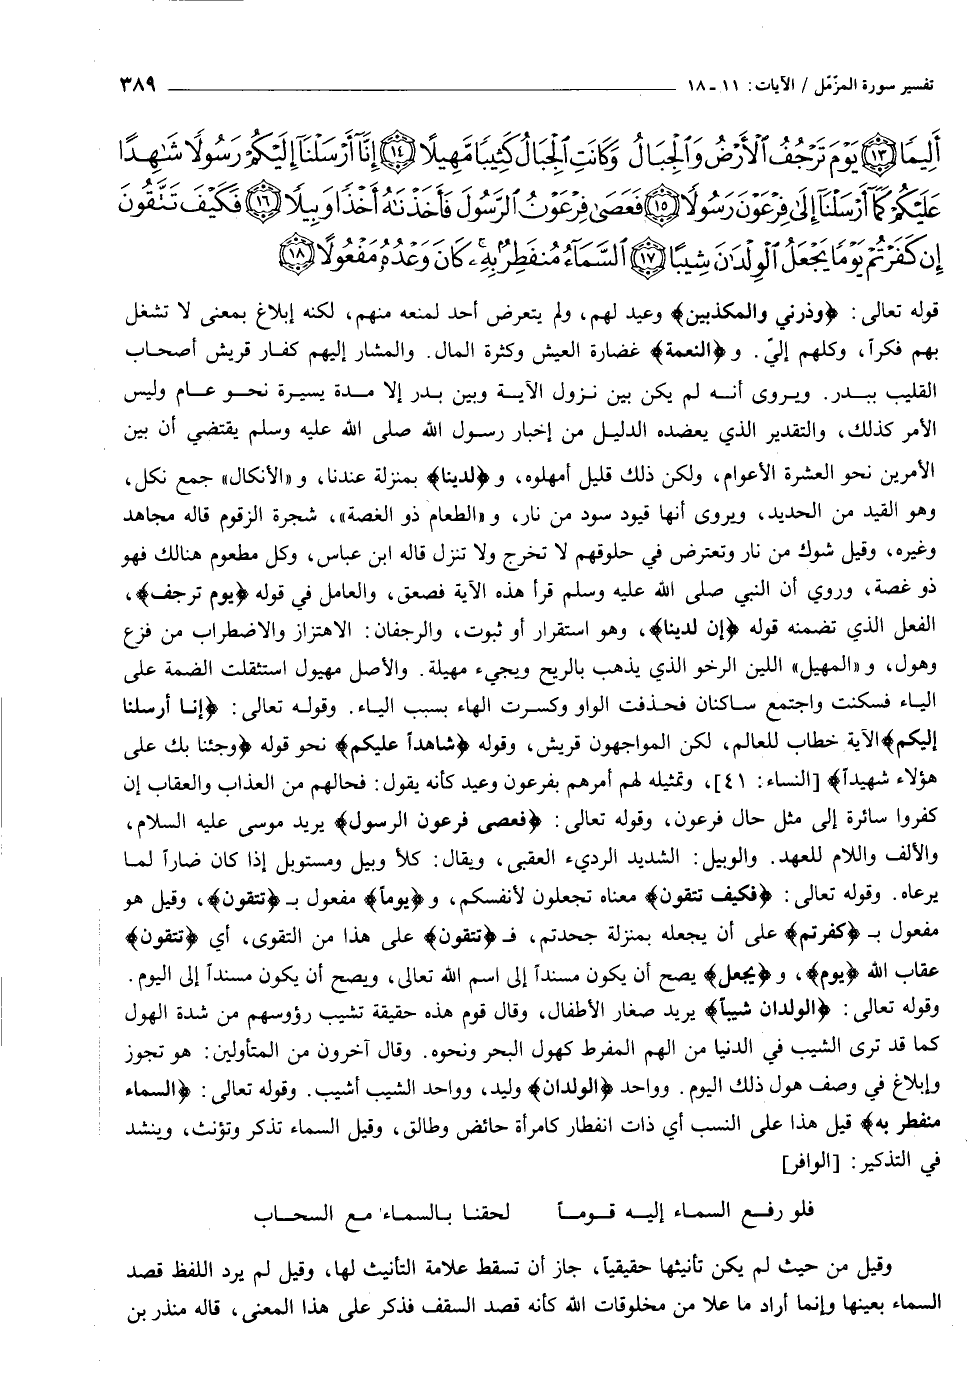 تفسير سورة المزّمّل / الآيات: ١١ - ١٨ ٣٨٩
أَلِيمًا ﴿١٣﴾ يَوْمَ تَرْجُفُ ٱلْأَرْضُ وَٱلْجِبَالُ وَكَانَتِ ٱلْجِبَالُ كَثِيبًا مَّهِيلًا ﴿١٤﴾ إِنَّآ أَرْسَلْنَآ إِلَيْكُمْ رَسُولًا شَٰهِدًا
عَلَيْكُمْ كَمَآ أَرْسَلْنَآ إِلَىٰ فِرْعَوْنَ رَسُولًا ﴿١٥﴾ فَعَصَىٰ فِرْعَوْنُ ٱلرَّسُولَ فَأَخَذْنَٰهُ أَخْذًا وَبِيلًا ﴿١٦﴾ فَكَيْفَ تَتَّقُونَ
إِن كَفَرْتُمْ يَوْمًا يَجْعَلُ ٱلْوِلْدَٰنَ شِيبًا ﴿١٧﴾ ٱلسَّمَآءُ مُنفَطِرٌۢ بِهِۦ ۚ كَانَ وَعْدُهُۥ مَفْعُولًا ﴿١٨﴾
قوله تعالى: ﴿وذرني والمكذبين﴾ وعيد لهم، ولم يتعرض أحد لمنعه منهم، لكنه إبلاغ بمعنى لا تشغل
بهم فكراً، وكلهم إليّ. و﴿النعمة﴾ غضارة العيش وكثرة المال. والمشار إليهم كفار قريش أصحاب
القليب ببدر. ويروى أنه لم يكن بين نزول الآية وبين بدر إلا مدة يسيرة نحو عام وليس
الأمر كذلك، والتقدير الذي يعضده الدليل من إخبار رسول الله صلى الله عليه وسلم يقتضي أن بين
الأمرين نحو العشرة الأعوام، ولكن ذلك قليل أمهلوه، و﴿لدينا﴾ بمنزلة عندنا، و«الأنكال» جمع نكل،
وهو القيد من الحديد، ويروى أنها قيود سود من نار، و«الطعام ذو الغصة»، شجرة الزقوم قاله مجاهد
وغيره، وقيل شوك من نار وتعترض في حلوقهم لا تخرج ولا تنزل قاله ابن عباس، وكل مطعوم هنالك فهو
ذو غصة، وروي أن النبي صلى الله عليه وسلم قرأ هذه الآية فصعق، والعامل في قوله ﴿يوم ترجف﴾،
الفعل الذي تضمنه قوله ﴿إن لدينا﴾، وهو استقرار أو ثبوت، والرجفان: الاهتزاز والاضطراب من فزع
وهول، و«المهيل» اللين الرخو الذي يذهب بالريح ويجيء مهيلة. والأصل مهيول استثقلت الضمة على
الياء فسكنت واجتمع ساكنان فحذفت الواو وكسرت الهاء بسبب الياء. وقوله تعالى: ﴿إنا أرسلنا
إليكم﴾الآية خطاب للعالم، لكن المواجهون قريش، وقوله ﴿شاهداً عليكم﴾ نحو قوله ﴿وجئنا بك على
هؤلاء شهيداً﴾ [النساء: ٤١]، وتمثيله لهم أمرهم بفرعون وعيد كأنه يقول: فحالهم من العذاب والعقاب إن
كفروا سائرة إلى مثل حال فرعون، وقوله تعالى: ﴿فعصى فرعون الرسول﴾ يريد موسى عليه السلام،
والألف واللام للعهد. والوبيل: الشديد الرديء العقبى، ويقال: كلأ وبيل ومستوبل إذا كان ضاراً لما
يرعاه. وقوله تعالى: ﴿فكيف تتقون﴾ معناه تجعلون لأنفسكم، و﴿يوماً﴾ مفعول بـ ﴿تتقون﴾، وقيل هو
مفعول بـ ﴿كفرتم﴾ على أن يجعله بمنزلة جحدتم، فـ ﴿تتقون﴾ على هذا من التقوى، أي ﴿تتقون﴾
عقاب الله ﴿يوم﴾، و﴿يجعل﴾ يصح أن يكون مسنداً إلى اسم الله تعالى، ويصح أن يكون مسنداً إلى اليوم.
وقوله تعالى: ﴿الولدان شيباً﴾ يريد صغار الأطفال، وقال قوم هذه حقيقة تشيب رؤوسهم من شدة الهول
كما قد ترى الشيب في الدنيا من الهم المفرط كهول البحر ونحوه. وقال آخرون من المتأولين: هو تجوز
وإبلاغ في وصف هول ذلك اليوم. وواحد ﴿الولدان﴾ وليد، وواحد الشيب أشيب. وقوله تعالى: ﴿السماء
منفطر به﴾ قيل هذا على النسب أي ذات انفطار كامرأة حائض وطالق، وقيل السماء تذكر وتؤنث، وينشد
في التذكير: [الوافر]
فلو رفع السماء إليه قوماً لحقنا بالسماء مع السحاب
وقيل من حيث لم يكن تأنيثها حقيقياً، جاز أن تسقط علامة التأنيث لها، وقيل لم يرد اللفظ قصد
السماء بعينها وإنما أراد ما علا من مخلوقات الله كأنه قصد السقف فذكر على هذا المعنى، قاله منذر بن